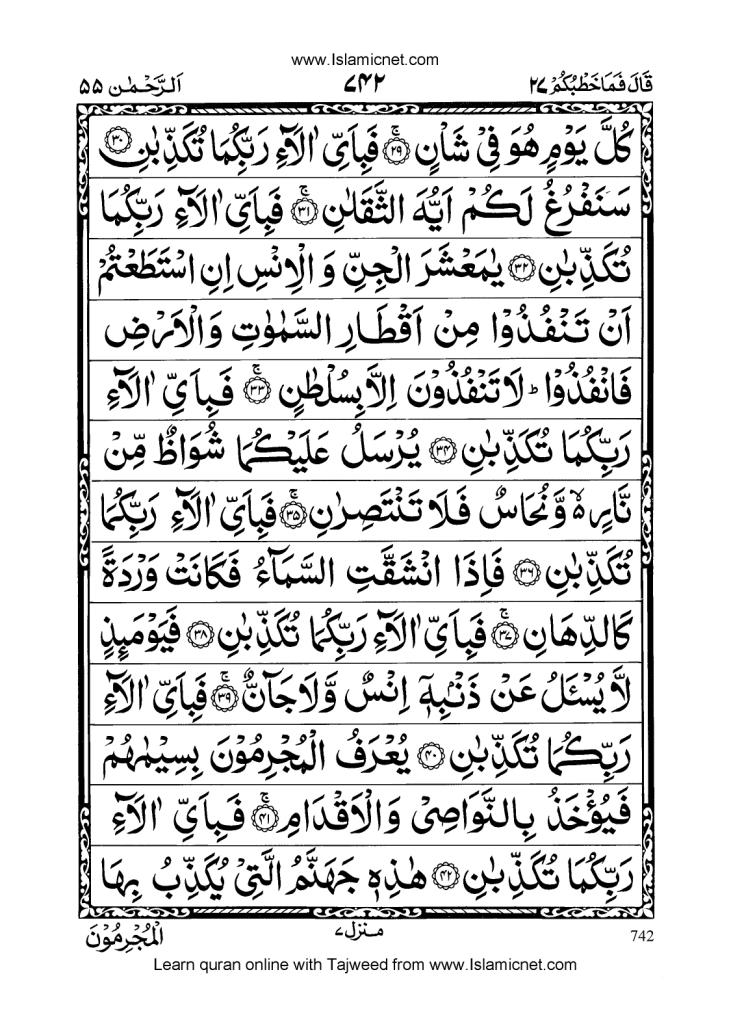 www.Islamicnet.com
قَالَ فَمَا خَطْبُكُمْ ۲۷
۷۴۲
اَلرَّحْمٰن ۵۵
كُلَّ يَوْمٍ هُوَ فِيْ شَاْنٍ ۚ۝۲۹ فَبِاَيِّ اٰلَآءِ رَبِّكُمَا تُكَذِّبٰنِ ۝۳۰
سَنَفْرُغُ لَكُمْ اَيُّهَ الثَّقَلٰنِ ۚ۝۳۱ فَبِاَيِّ اٰلَآءِ رَبِّكُمَا
تُكَذِّبٰنِ ۝۳۲ يٰمَعْشَرَ الْجِنِّ وَ الْاِنْسِ اِنِ اسْتَطَعْتُمْ
اَنْ تَنْفُذُوْا مِنْ اَقْطَارِ السَّمٰوٰتِ وَالْاَرْضِ
فَانْفُذُوْا ؕ لَا تَنْفُذُوْنَ اِلَّا بِسُلْطٰنٍ ۚ۝۳۳ فَبِاَيِّ اٰلَآءِ
رَبِّكُمَا تُكَذِّبٰنِ ۝۳۴ يُرْسَلُ عَلَيْكُمَا شُوَاظٌ مِّنْ
نَّارٍ ۵ۙ وَّنُحَاسٌ فَلَا تَنْتَصِرٰنِ ۚ۝۳۵ فَبِاَيِّ اٰلَآءِ رَبِّكُمَا
تُكَذِّبٰنِ ۝۳۶ فَاِذَا انْشَقَّتِ السَّمَآءُ فَكَانَتْ وَرْدَةً
كَالدِّهَانِ ۚ۝۳۷ فَبِاَيِّ اٰلَآءِ رَبِّكُمَا تُكَذِّبٰنِ ۝۳۸ فَيَوْمَئِذٍ
لَّا يُسْـَٔلُ عَنْ ذَنْۢبِهٖۤ اِنْسٌ وَّلَا جَآنٌّ ۚ۝۳۹ فَبِاَيِّ اٰلَآءِ
رَبِّكُمَا تُكَذِّبٰنِ ۝۴۰ يُعْرَفُ الْمُجْرِمُوْنَ بِسِيْمٰهُمْ
فَيُؤْخَذُ بِالنَّوَاصِيْ وَالْاَقْدَامِ ۚ۝۴۱ فَبِاَيِّ اٰلَآءِ
رَبِّكُمَا تُكَذِّبٰنِ ۝۴۲ هٰذِهٖ جَهَنَّمُ الَّتِيْ يُكَذِّبُ بِهَا
الْمُجْرِمُوْنَ
منزل ۷
742
Learn quran online with Tajweed from www.Islamicnet.com